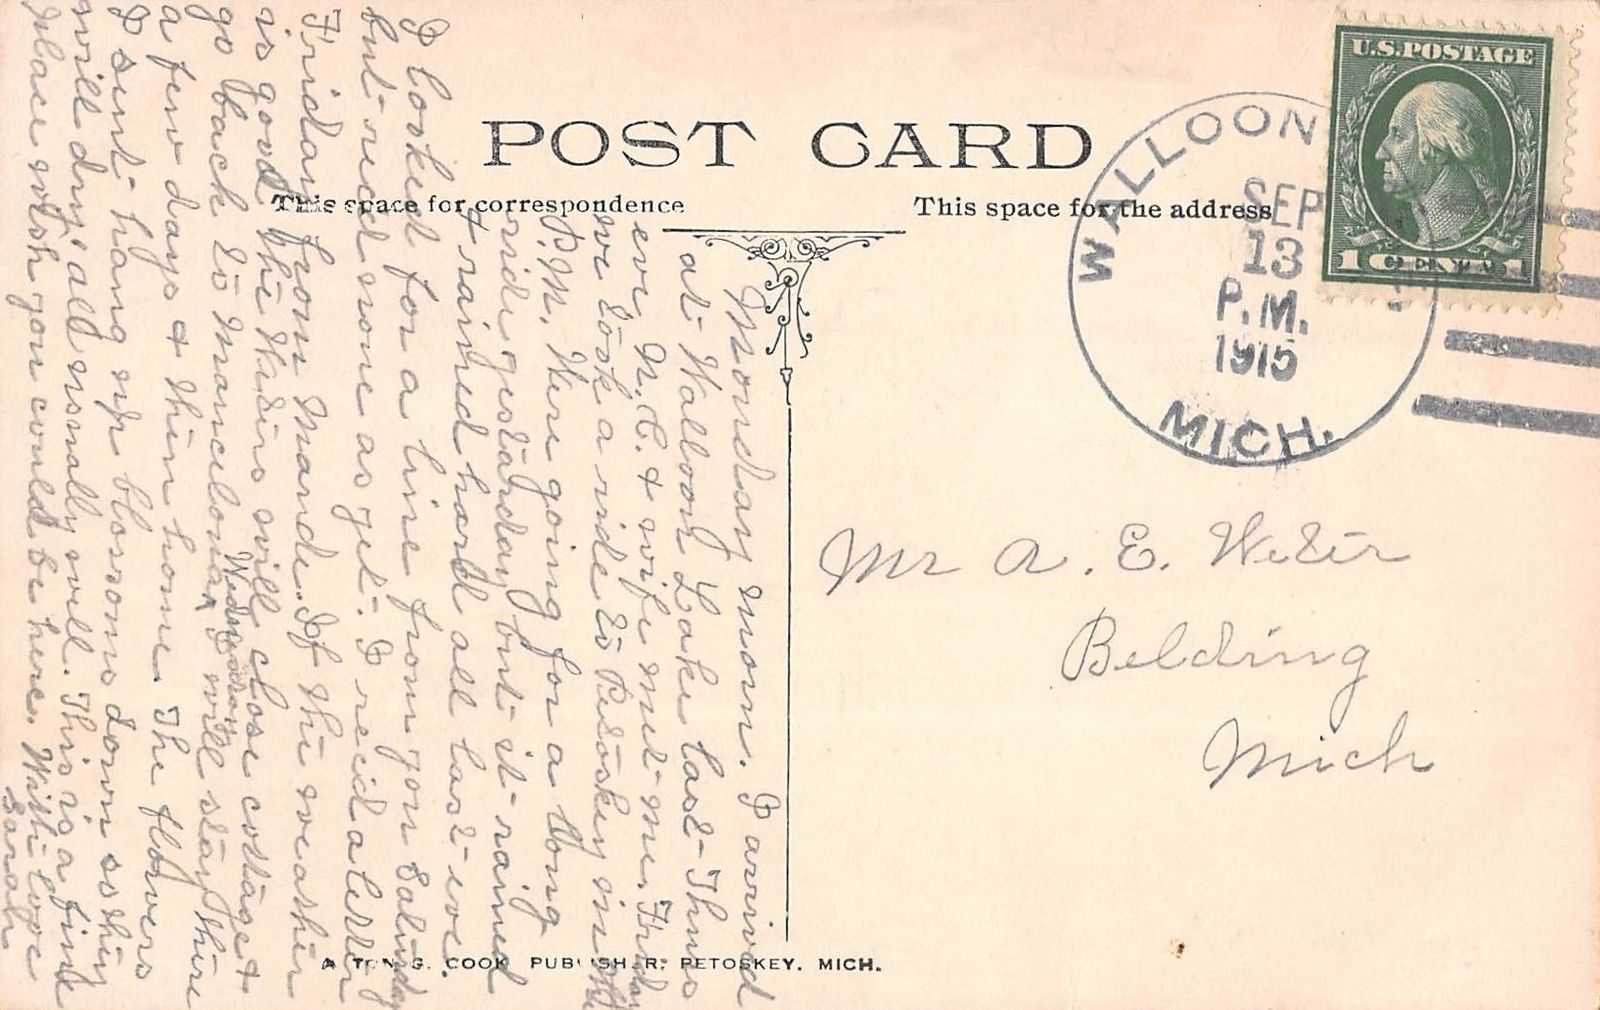 POST CARD
This space for correspondence
This space for the address
U.S. POSTAGE
WALLOON
SEP
13
P.M.
1915
MICH.
Mr A. E. Weter
Belding
Mich
Monday morn. I arrived
at Walloon Lake last Thurs
eve. N. C. & wife met me. Friday
we took a ride to Petoskey in the
P.M. Were going for a long
ride yesterday but it rained
& rained hard all last eve.
I looked for a line from you Saturday
but rec'd none as yet. I rec'd a letter
Friday from Maude. If the weather
is good the Weters will close cottage &
go back to Mancelona Wednesday I will stay there
a few days & then home. The flowers
I sent hang up blossoms down so they
will dry all usually will. This is a fine
place wish you could be here. With love
Sarah
G. COOK, PUBLISHER, PETOSKEY, MICH.